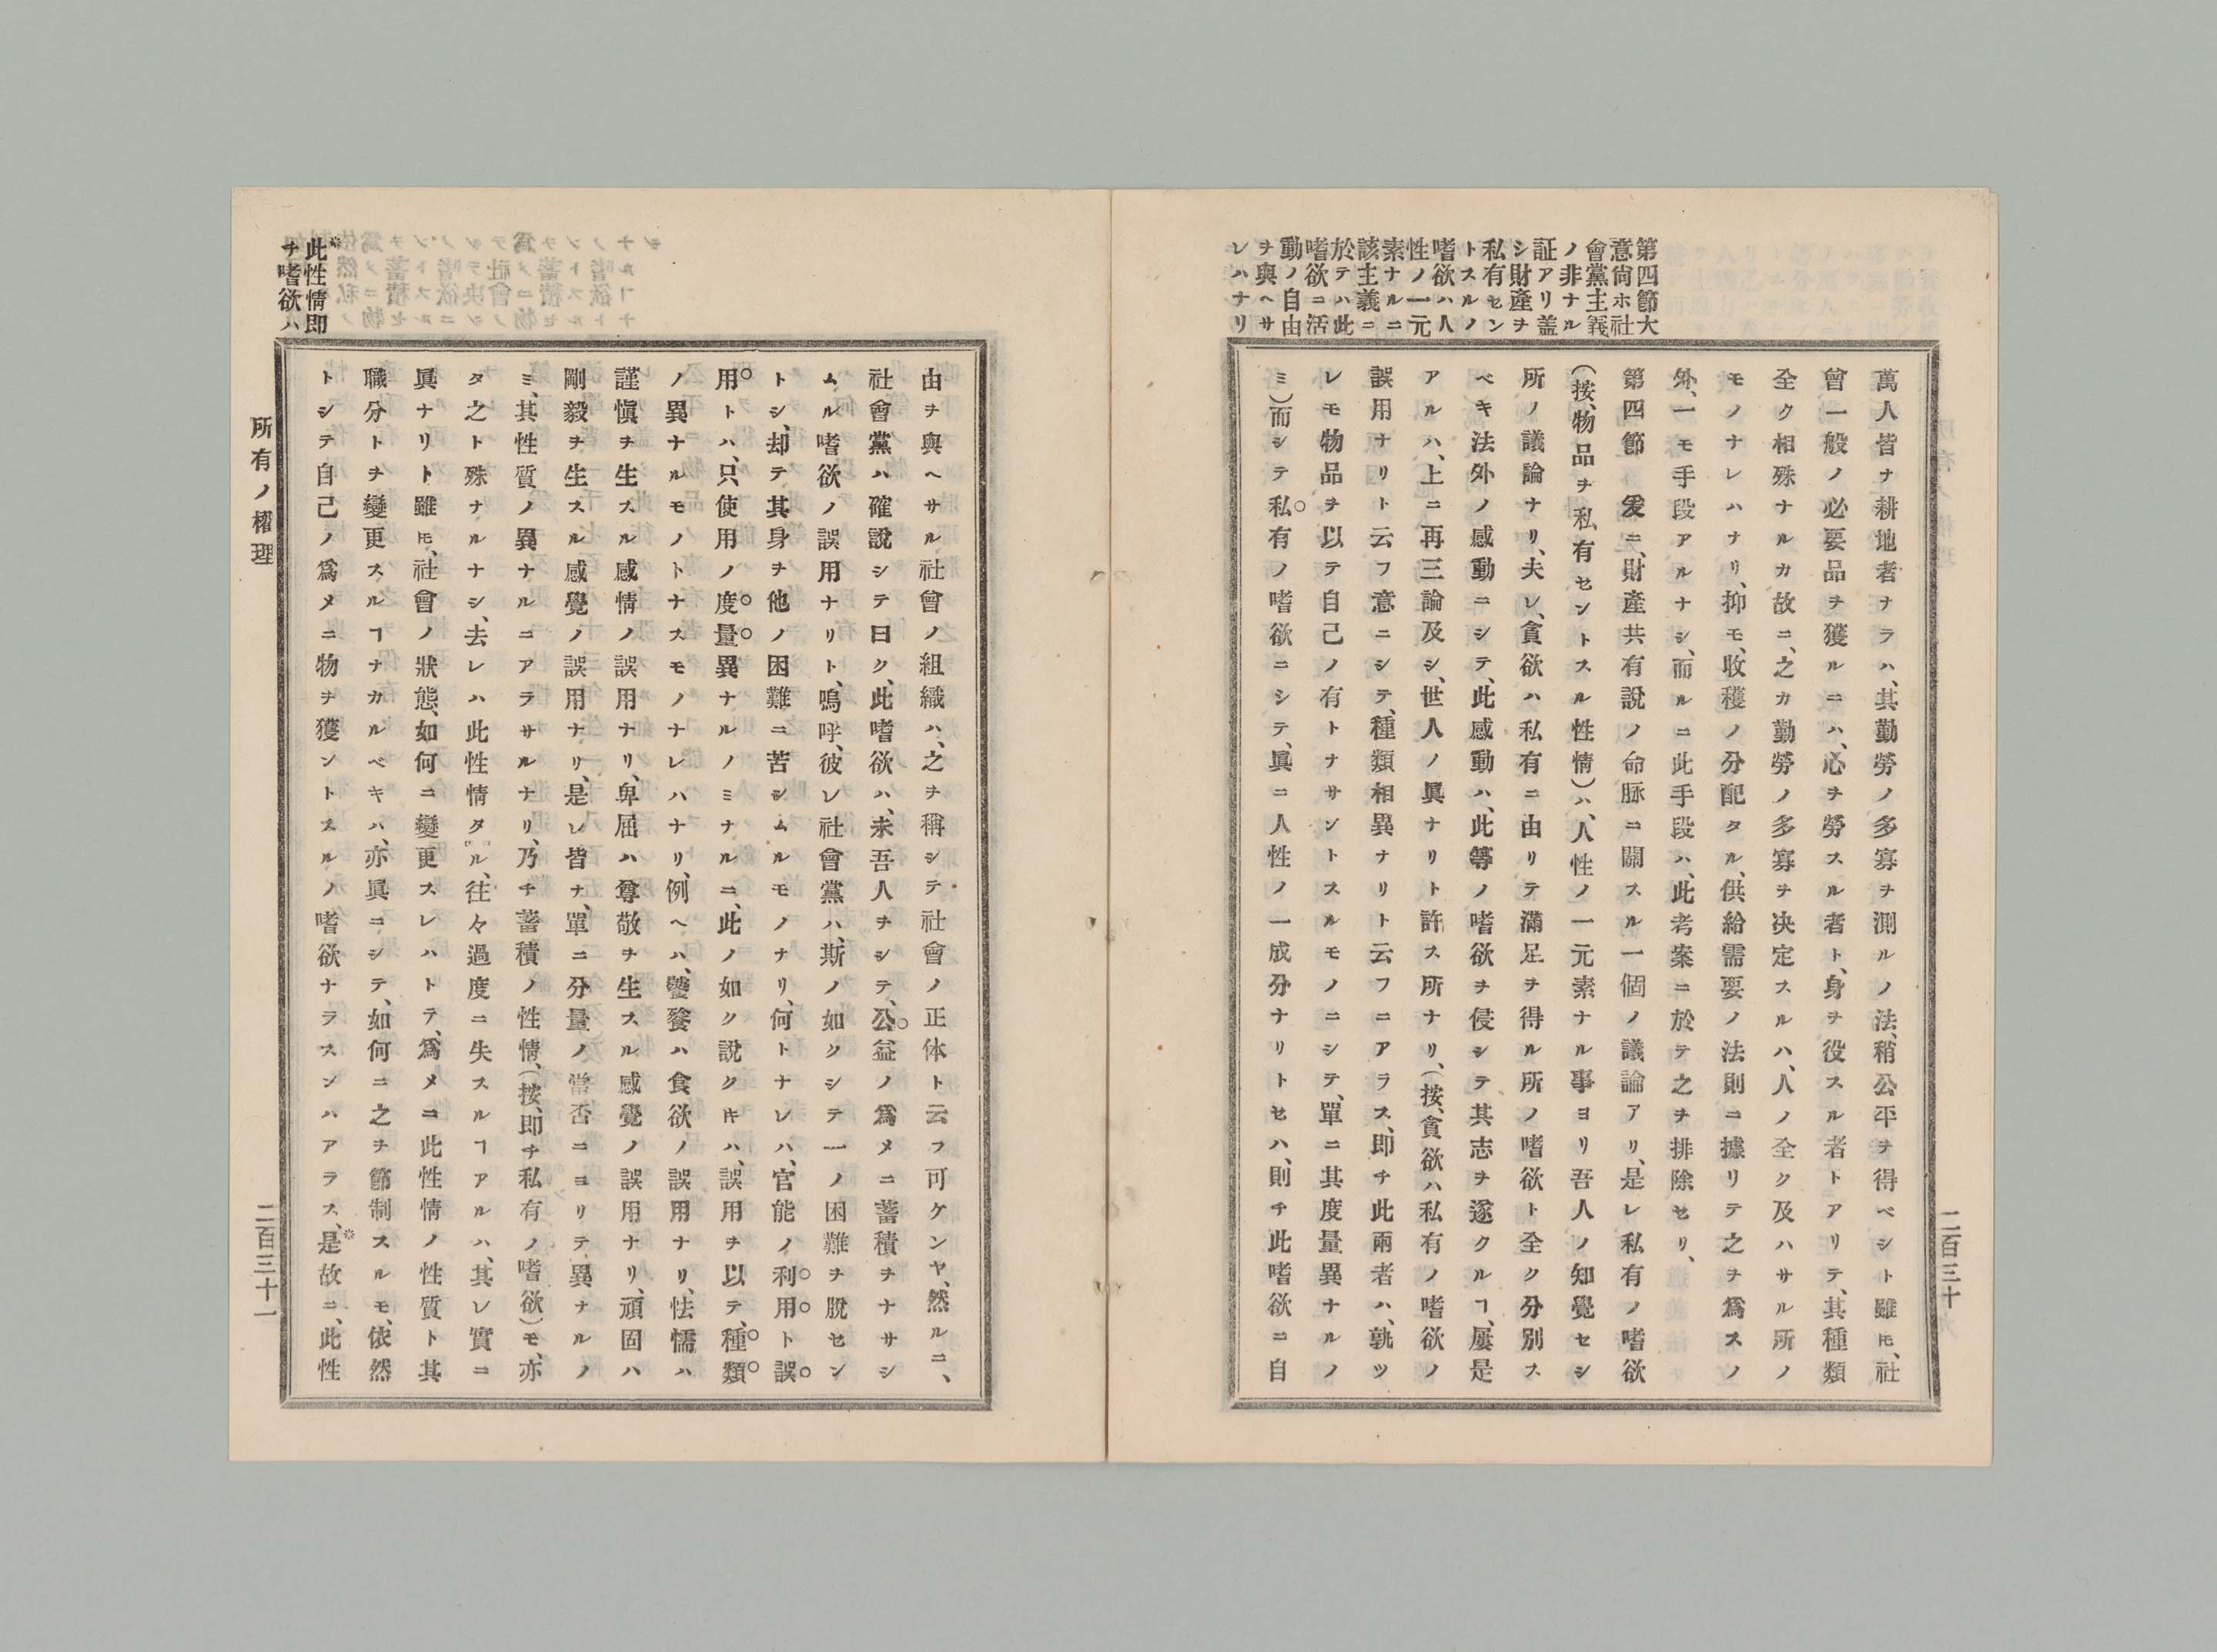 第四節大
意尙ホ社
會黨主義
ノ非ナル
証アリ盖
シ財產ヲ
私有セン
トスルノ
嗜欲ハ人
性ノ一元
素ナルニ
該主義ニ
於テハ此
嗜欲ニ活
動ノ自由
ヲ與ヘサ
レハナリ
萬人皆ナ耕地者ナラハ、其勤勞ノ多寡ヲ測ルノ法、稍公平ヲ得ベシト雖𪜈、社
會一般ノ必要品ヲ獲ルニハ、心ヲ勞スル者ト、身ヲ役スル者トアリテ、其種類
全ク相殊ナルカ故ニ、之カ勤勞ノ多寡ヲ决定スルハ、人ノ全ク及ハサル所ノ
モノナレハナリ、抑モ、收穫ノ分配タル、供給需要ノ法則ニ據リテ之ヲ爲スノ
外、一モ手段アルナシ、而ルニ此手段ハ、此考案ニ於テ之ヲ排除セリ、
第四節 爰ニ、財產共有說ノ命脉ニ關スル一個ノ議論アリ、是レ私有ノ嗜欲
(按、物品ヲ私有セントスル性情)ハ、人性ノ一元素ナル事ヨリ吾人ノ知覺セシ
所ノ議論ナリ、夫レ、貪欲ハ私有ニ由リテ滿足ヲ得ル所ノ嗜欲ト全ク分別ス
ベキ法外ノ感動ニシテ、此感動ハ、此等ノ嗜欲ヲ侵シテ其志ヲ遂クルヿ、屢是
アルハ、上ニ再三論及シ、世人ノ眞ナリト許ス所ナリ、(按、貪欲ハ私有ノ嗜欲ノ
誤用ナリト云フ意ニシテ、種類相異ナリト云フニアラス、即チ此兩者ハ、孰ツ
レモ物品ヲ以テ自己ノ有トナサントスルモノニシテ、單ニ其度量異ナルノ
ミ)而シテ私有ノ嗜欲ニシテ、眞ニ人性ノ一成分ナリトセハ、則チ此嗜欲ニ自
二百三十
※此性情即
チ嗜欲ハ
由ヲ與ヘサル社會ノ組織ハ、之ヲ稱シテ社會ノ正体ト云フ可ケンヤ、然ルニ、
社會黨ハ確說シテ曰ク、此嗜欲ハ、未吾人ヲシテ、公益ノ爲メニ蓄積ヲナサシ
ムル嗜欲ノ誤用ナリト、嗚呼、彼レ社會黨ハ、斯ノ如クシテ一ノ困難ヲ脫セン
トシ、却テ其身ヲ他ノ困難ニ苦シムルモノナリ、何トナレハ、官能ノ利用ト誤
用トハ、只使用ノ度量異ナルノミナルニ、此ノ如ク說クキハ、誤用ヲ以テ、種類
ノ異ナルモノトナスモノナレハナリ、例ヘハ、饕餮ハ食欲ノ誤用ナリ、怯懦ハ
謹愼ヲ生スル感情ノ誤用ナリ、卑屈ハ尊敬ヲ生スル感覺ノ誤用ナリ、頑固ハ
剛毅ヲ生スル感覺ノ誤用ナリ、是レ皆ナ、單ニ分量ノ當否ニヨリテ異ナルノ
ミ、其性質ノ異ナルニアラサルナリ、乃チ蓄積ノ性情、(按、即チ私有ノ嗜欲)モ、亦
タ之ト殊ナルナシ、去レハ此性情タル、往々過度ニ失スルヿアルハ、其レ實ニ
眞ナリト雖𪜈、社會ノ狀態、如何ニ變更スレハトテ、爲メニ此性情ノ性質ト其
職分トヲ變更スルヿナカルベキハ、亦眞ニシテ、如何ニ之ヲ節制スルモ、依然
トシテ自己ノ爲メニ物ヲ獲ントスルノ嗜欲ナラスンハアラス、※是故ニ、此性
所有ノ權理
二百三十一